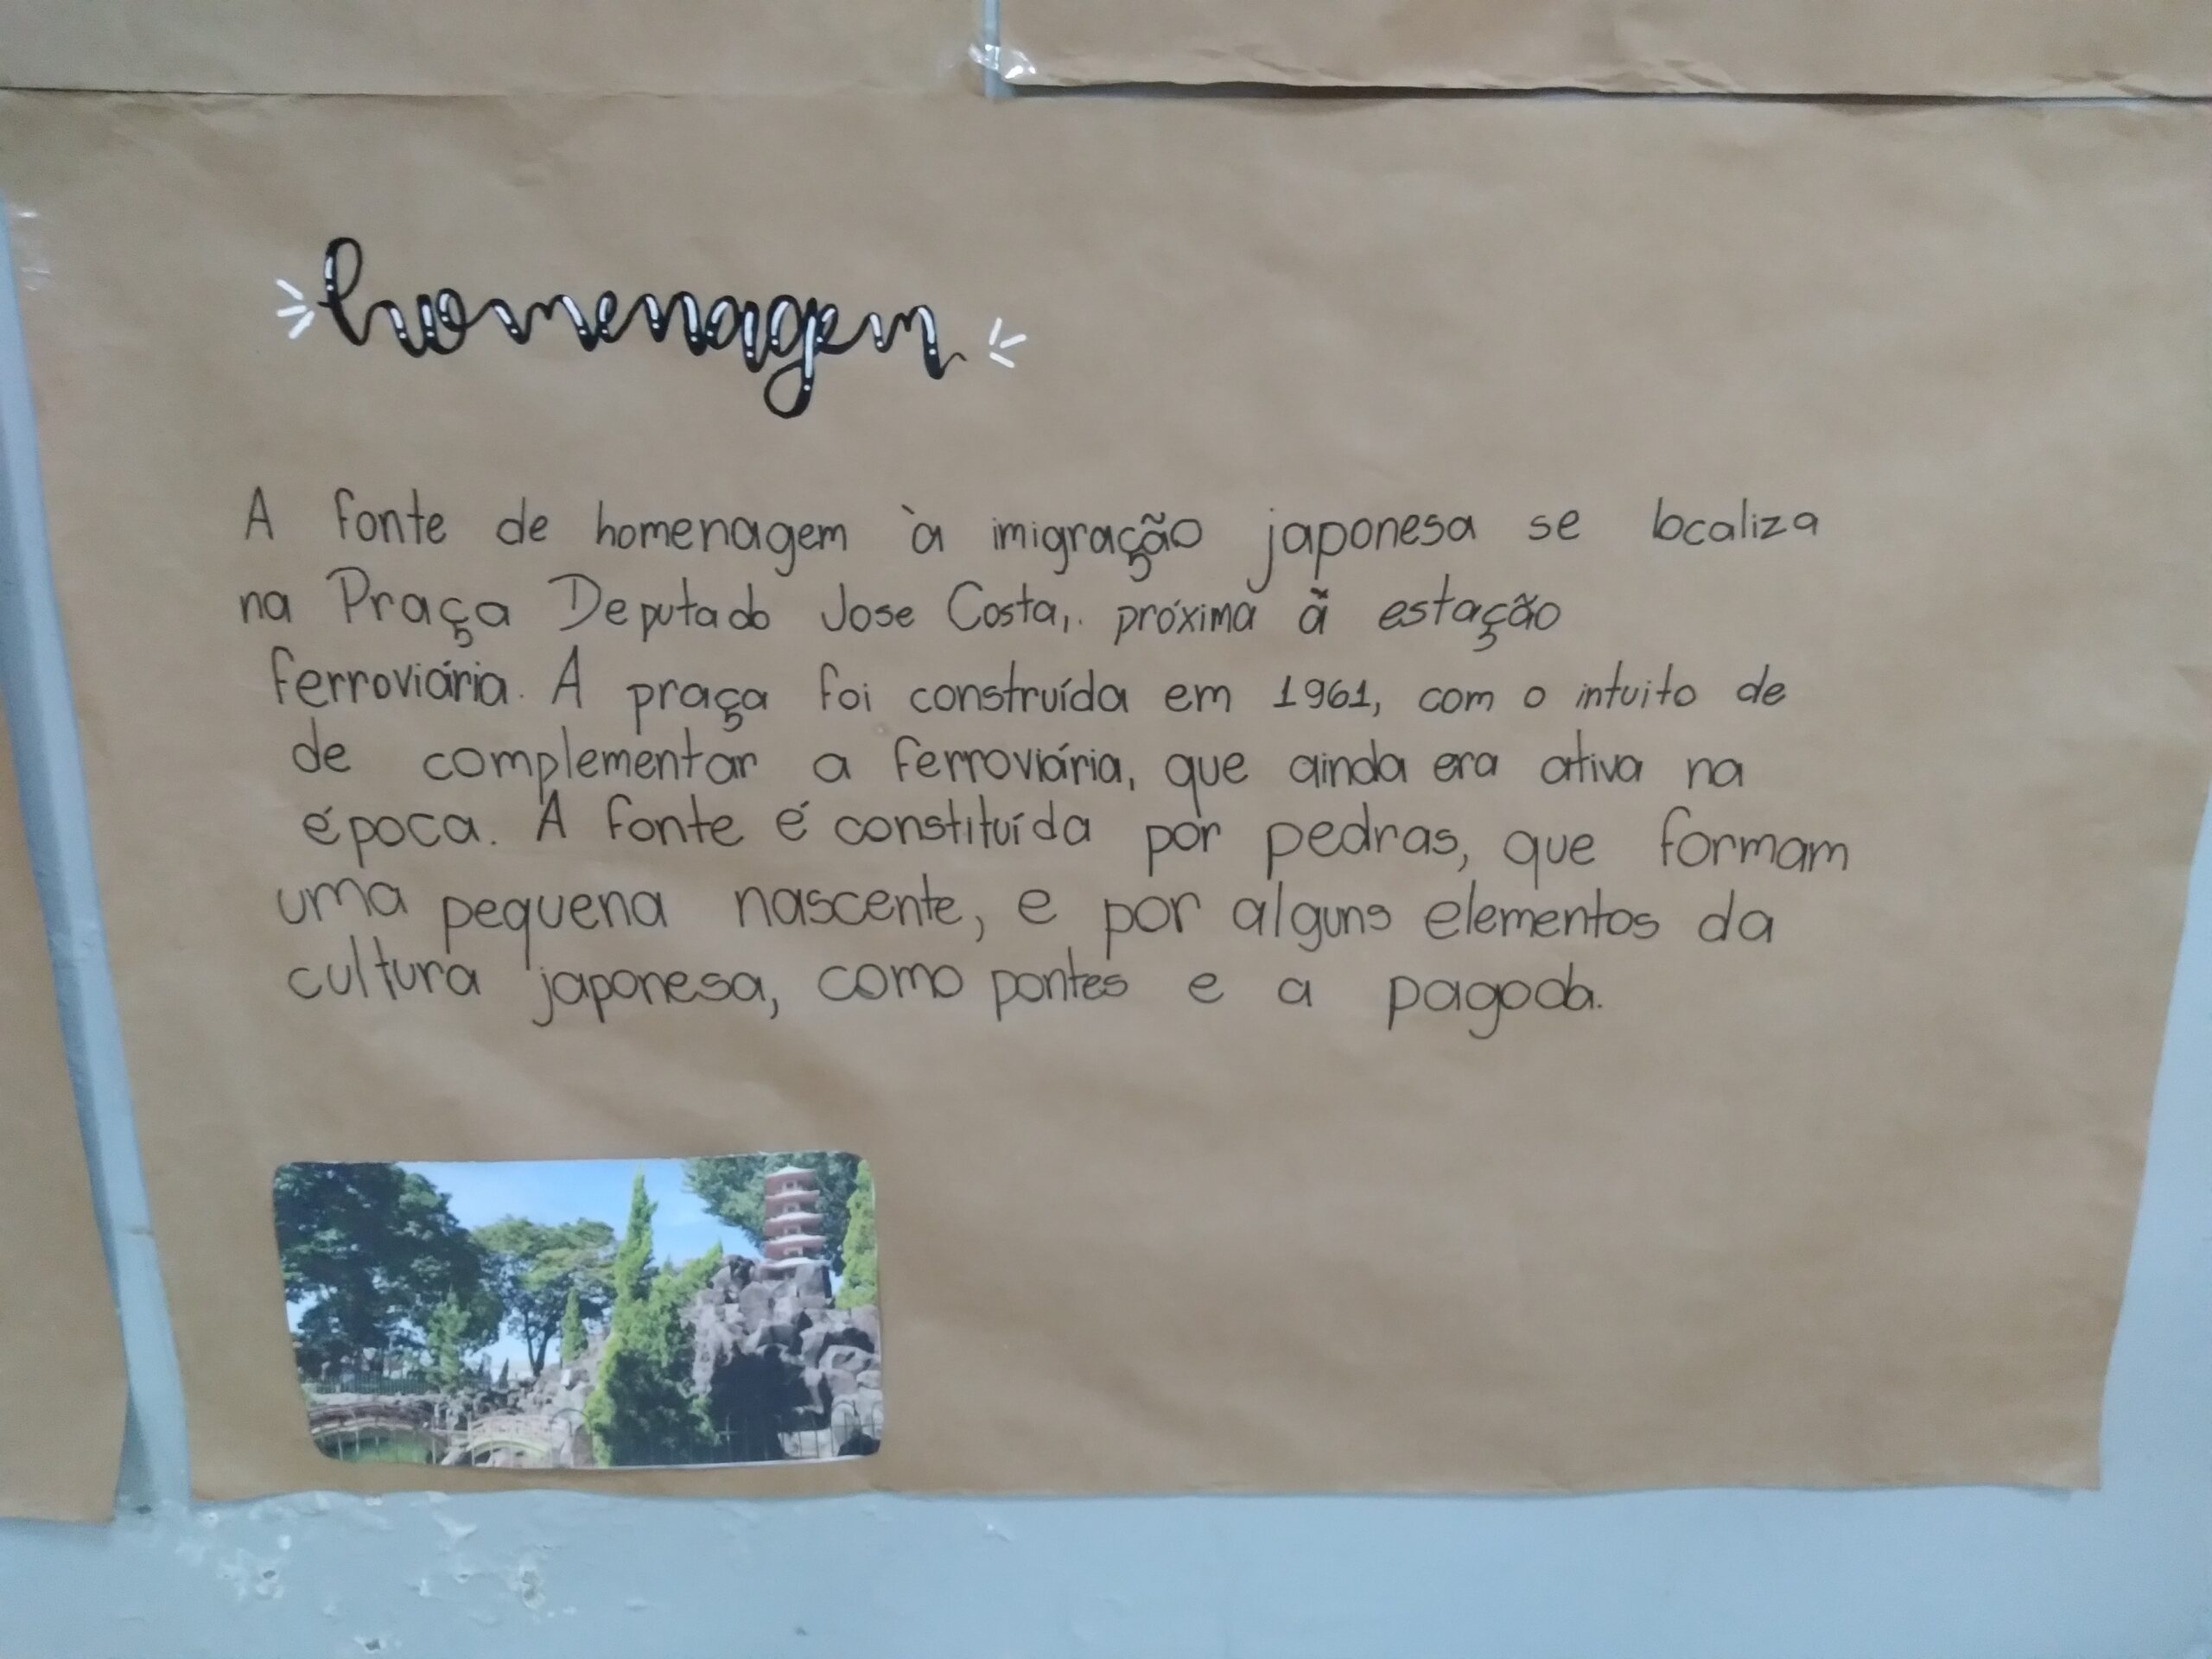 homenagem
A fonte de homenagem à imigração japonesa se localiza
na Praça Deputado Jose Costa, próxima à estação
ferroviária. A praça foi construída em 1961, com o intuito de
de complementar a ferroviária, que ainda era ativa na
época. A fonte é constituída por pedras, que formam
uma pequena nascente, e por alguns elementos da
cultura japonesa, como pontes e a pagoda.